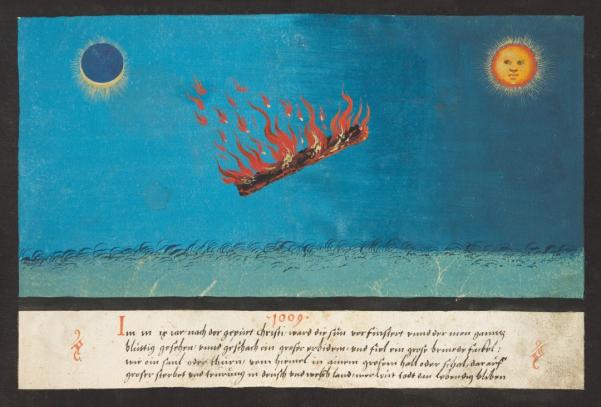 1009
Im m ix iar nach der gepurt Christi ward die sun verfinstert vnnd der mon ganntz
blüttig gesehen vnnd geschach ein groser erbidem vnd fiel ein grose brinende fackel
wie ein saul oder thurn vom himel in ainem grosem hall oder
groser sterbet vnd teurung in deutsch vnd welsch land mer leut tadt dan lebendig bliben